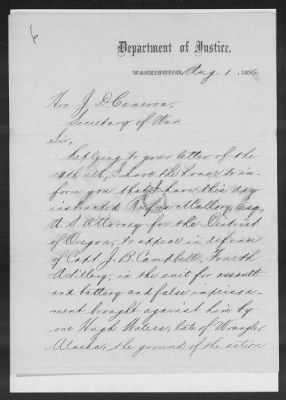 6
Department of Justice,
WASHINGTON, Aug. 1, 1876.
Hon. J. D. Cameron,
Secretary of War.
Sir,
Replying to your letter of the
19th ult., I have the honor to in-
form you that I have this day
instructed Rufus Mallory, Esq.,
U.S. Attorney for the District
of Oregon, to appear in defense
of Capt. J. B. Campbell, Fourth
Artillery, in the suit for assault
and battery and false imprison-
ment brought against him by
one Hugh Waters, late of Wrangel
Alaska, the ground of the action